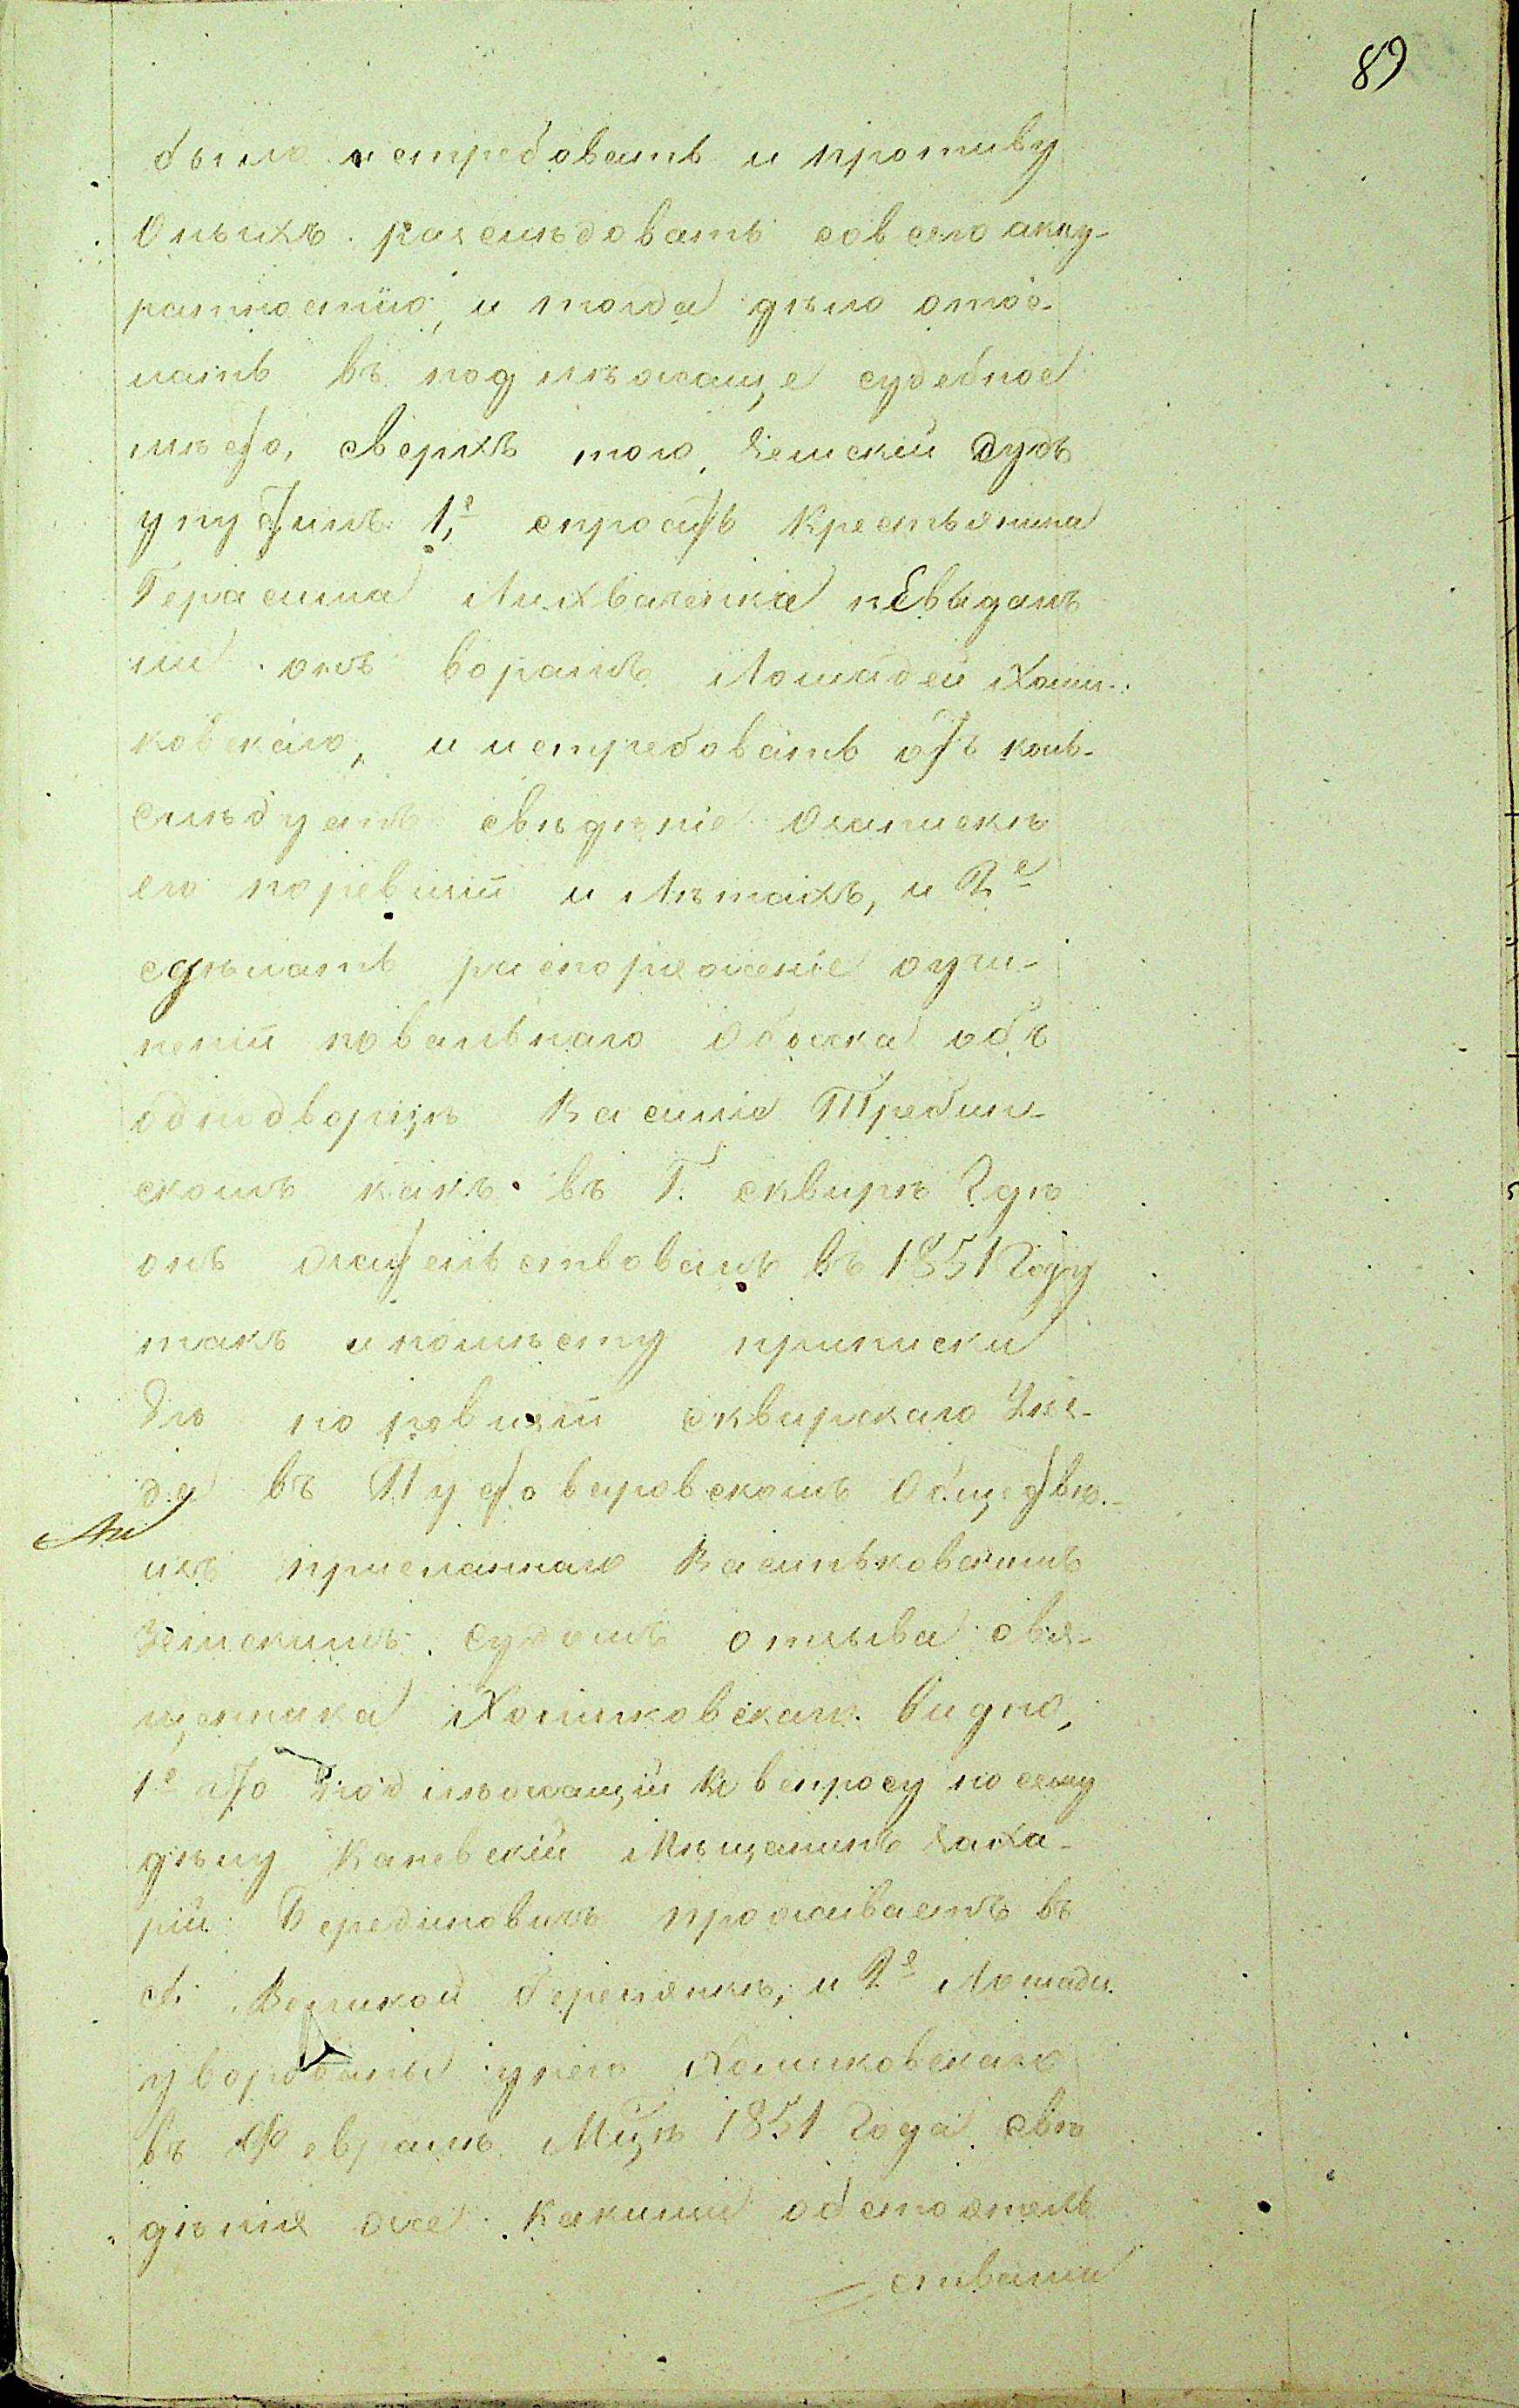 89
было истребовать и противу
оныхъ разслѣдовать совсего акку-
ратностію, и тогда дѣло отос-
лать въ подлѣжаще судебное
мѣсто, сверхъ того, Земскій Судъ
упустилъ 1,е спросить Крестьянина
Герасима Лихваченка невидалъ
ли онъ ворамъ Лошадей Холм-
ковскаго, и истребовать отъ коль-
слѣдуетъ свѣдѣніе озапискѣ
его поревизіи и Лѣтахъ, и 2е
сдѣлать распоряженіе оучи-
неніи повальнаго обыска объ
однодворцѣ Василіе Требин-
скомъ какъ въ Г. Сквирѣ Гдѣ
онъ жительствовалъ въ 1851 Году
такъ и помѣсту приписки
Эго по ревизіи сквирскаго Уѣз-
да въ Пустоваровскомъ обществѣ.-
изъ присланнаго Васильковскимъ
Земскимъ Судомъ отзыва свя-
щенника Холмковскаго Видно,
1е что подлѣжащій к вопросу по сему
дѣлу Каневскій Мѣщанинъ Заха-
рій Передиловичъ проживаетъ въ
с. Великой Березянкѣ, и 2е Лошади
уворованы унего Холмковскаго
въ Февралѣ Мцѣ 1851 Года свѣ
дѣнія же какими обстоятель
ствами